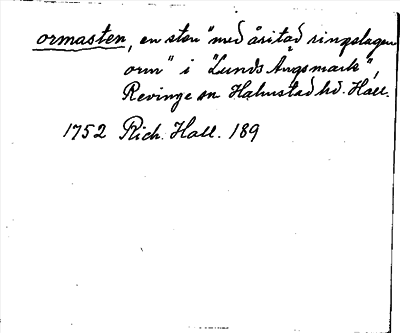 ormasten, en sten "med åsitad ringslagen
orm" i "Lunds Ängsmark",
Revinge sn Halmstad hd. Hall.
1752 Rich. Hall. 189